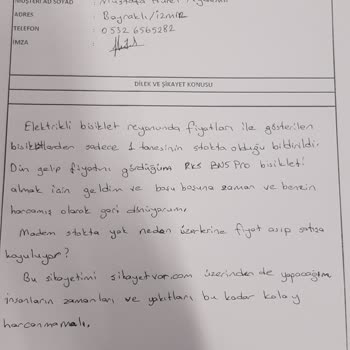 MÜŞTERİ ADI SOYAD :
ADRES : Bayraklı / izmir
TELEFON : 0 532 6565282
İMZA :
DİLEK VE ŞİKAYET KONUSU
Elektrikli bisiklet reyonunda fiyatları ile gösterilen
bisikletlerden sadece 1 tanesinin stokta olduğu bildirildi.
Dün gelip fiyatını gördüğüm RKS BN5 Pro bisikleti
almak için geldim ve boşu boşuna zaman ve benzin
harcamış olarak geri dönüyorum.
Madem stokta yok neden üzerlerine fiyat asıp satışa
koyuluyor?
Bu şikayetimi sikayetvar.com üzerinden de yapacağım
insanların zamanları ve yakıtları bu kadar kolay
harcanmamalı.